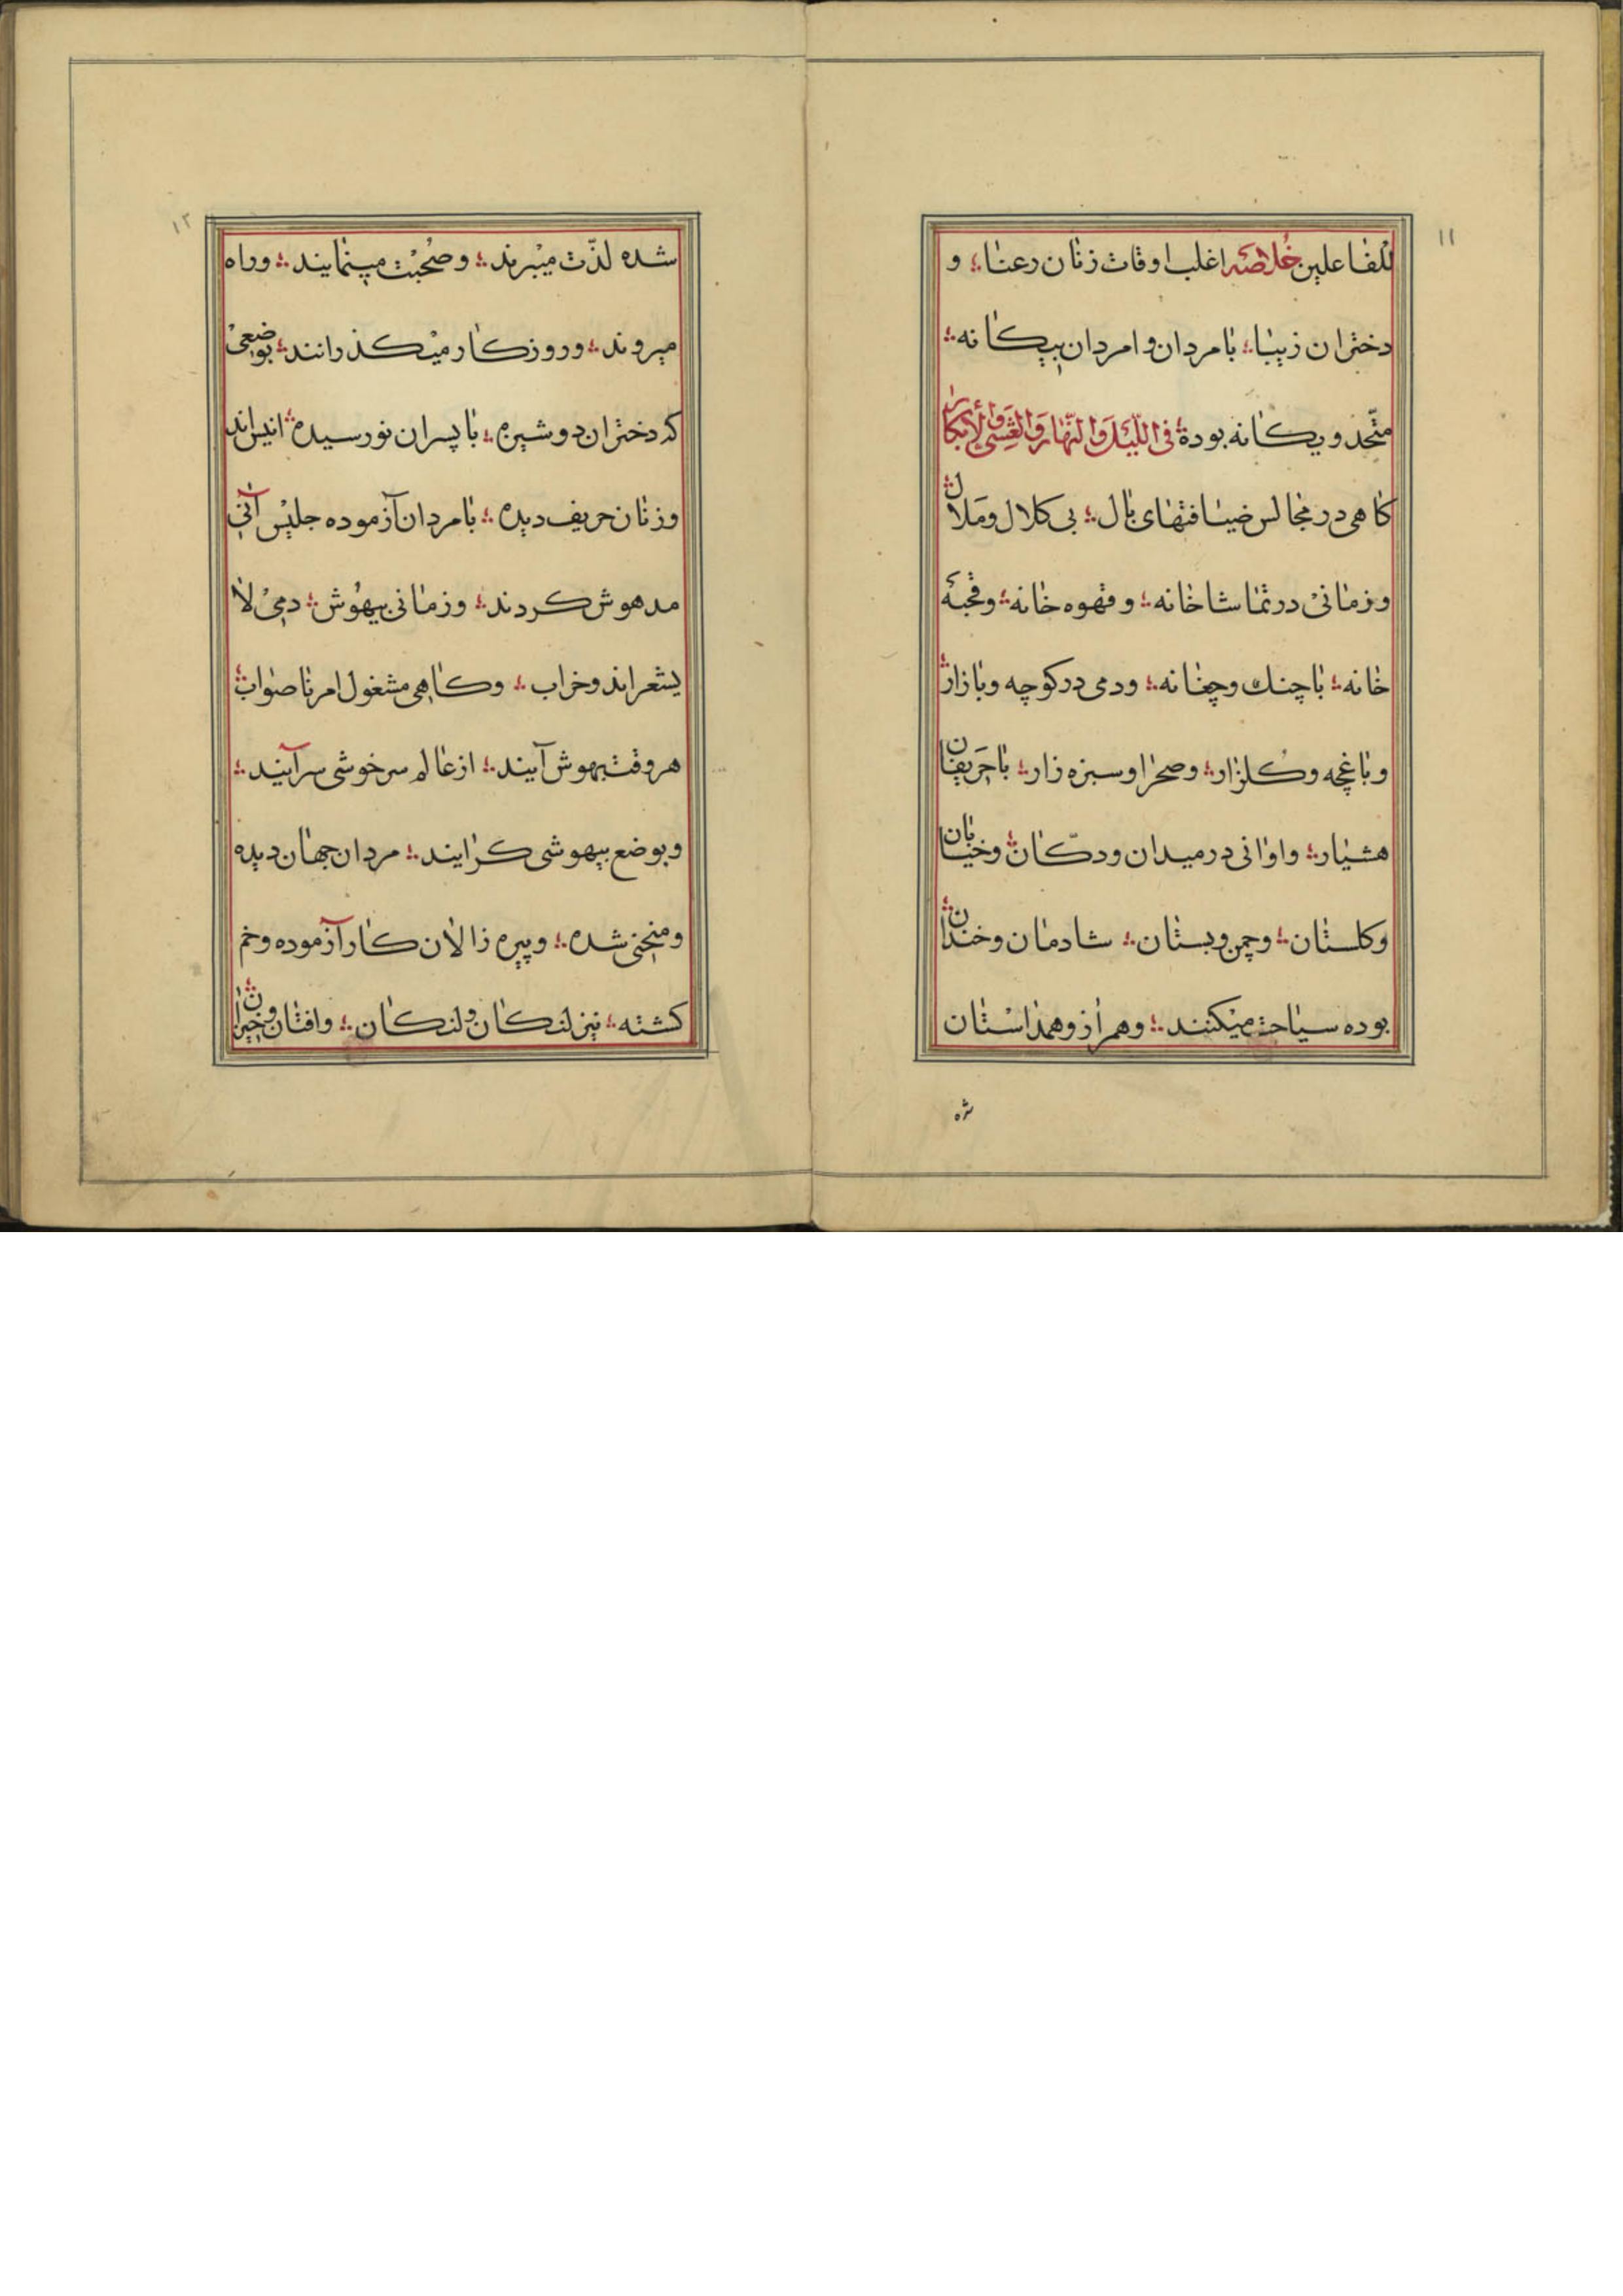 ۱۱
للفاعلین خُلاصَه اغلب اوقات زنان رعنا؛ و
دختران زیبا؛ با مردان و امردان بیکانه؛
متّحد و یکانه بوده؛ فی اللّیْل وَالنَّهار وَالعَشِیِّ وَالْأبکار
کاهی در مجالس ضیافتهای بال؛ بی کلال و مَلال؛
و زمانی در تماشاخانه؛ و قهوه خانه؛ و قحبهٔ
خانه؛ با چنك و چغانه؛ و دمی در کوچه و بازار؛
و باغچه و کلزار؛ و صحرا و سبزه زار؛ با حَریفان
هشیار؛ و اوانی در میدان و دکّان؛ و خیابان
و کلستان؛ و چمن و بستان؛ شادمان و خندان؛
بوده سیاحت میکنند؛ و همراز و همداستان
شده
۱۲
شده لذّت میْبرند؛ و صُحْبَت مینمایند؛ و راه
میروند؛ و روزکار میْکذرانند؛ بوضعیْ
که دختران دوشیزه؛ با پسران نورسیده؛ انیس اند
و زنان حریف دیده؛ با مردان آزموده جلیْس آنی
مدهوش کردند؛ و زمانی بیهُوش؛ دمیْ لا
یشعراند و خراب؛ و کاهی مشغول امر ناصواب؛
هر وقت بهوش آیند؛ از عالم سرخوشی سرآیند؛
و بوضع بیهوشی کرایند؛ مردان جهان دیده
و منحنی شده؛ و پیره زالان کار آزموده و خم
کشته؛ نیز لنکان و لنکان؛ و افتان و خیزان؛